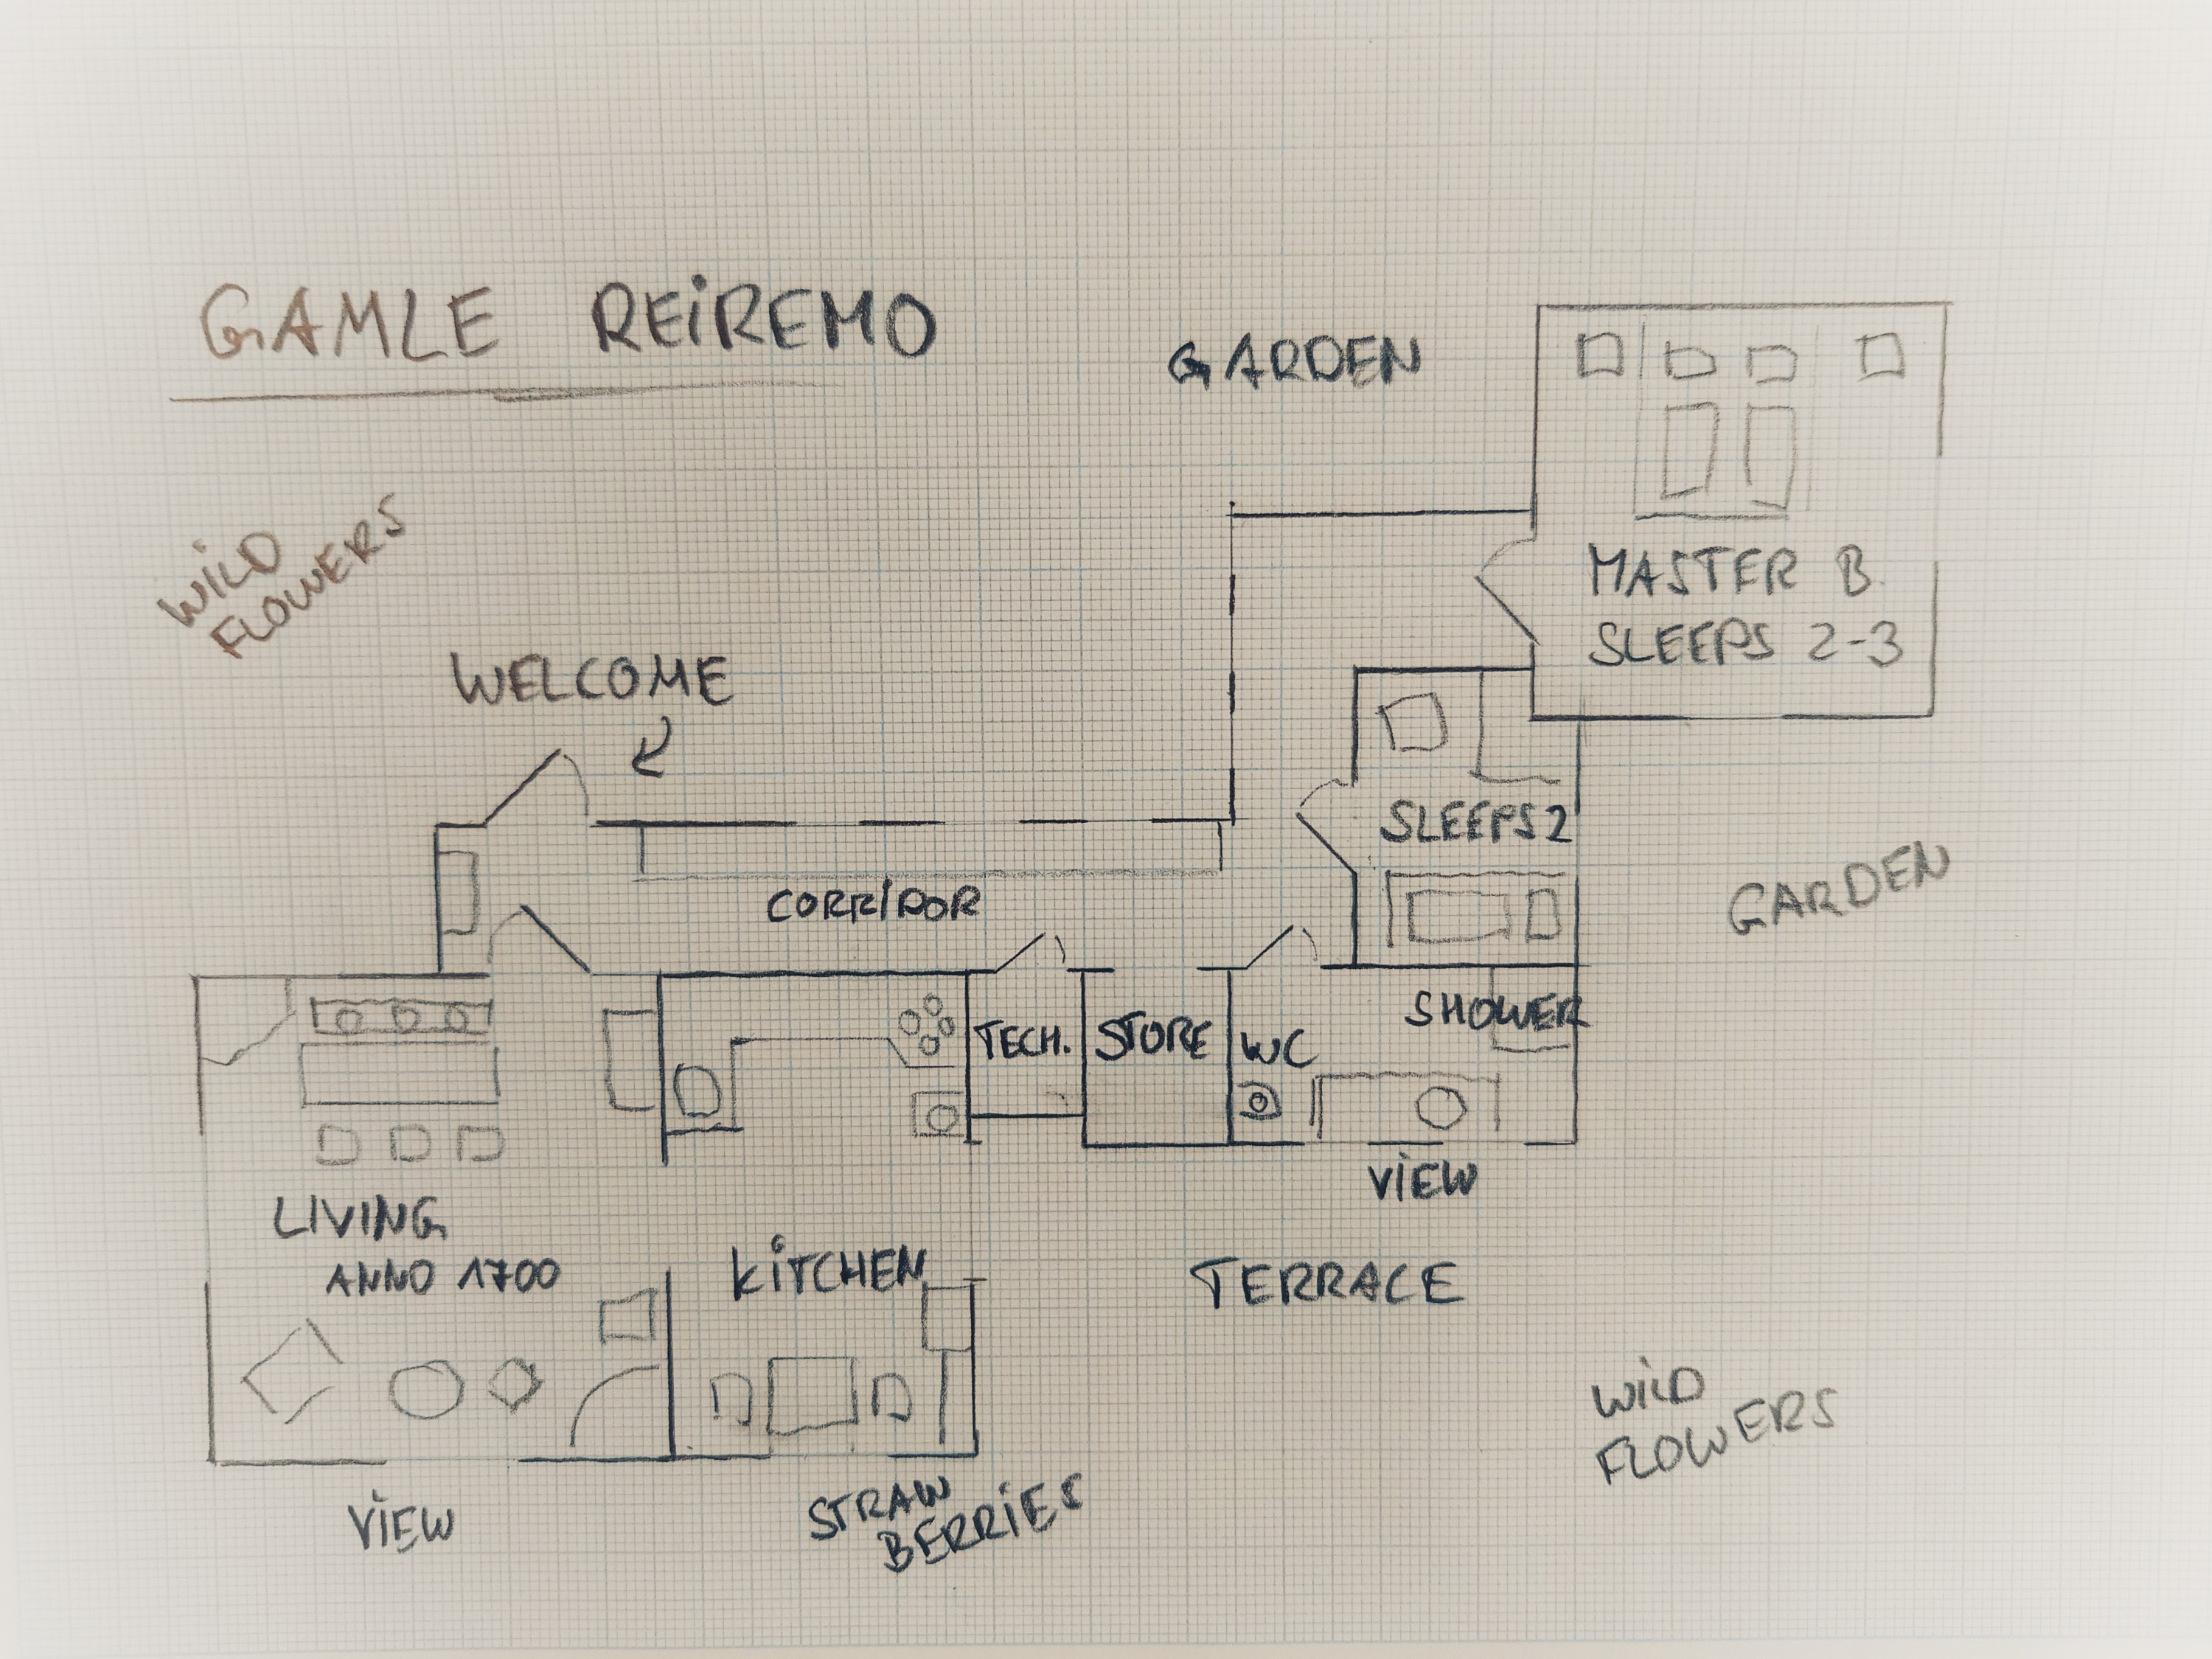 GAMLE REiREMO
GARDEN
WiLD
FLOWERS
MASTER B.
SLEEPS 2-3
WELCOME
SLEEPS 2
CORRIDOR
GARDEN
SHOWER
TECH.
STORE
WC
ViEW
LIVING
ANNO 1700
KiTCHEN
TERRACE
WiLD
FLOWERS
ViEW
STRAW
BERRiES